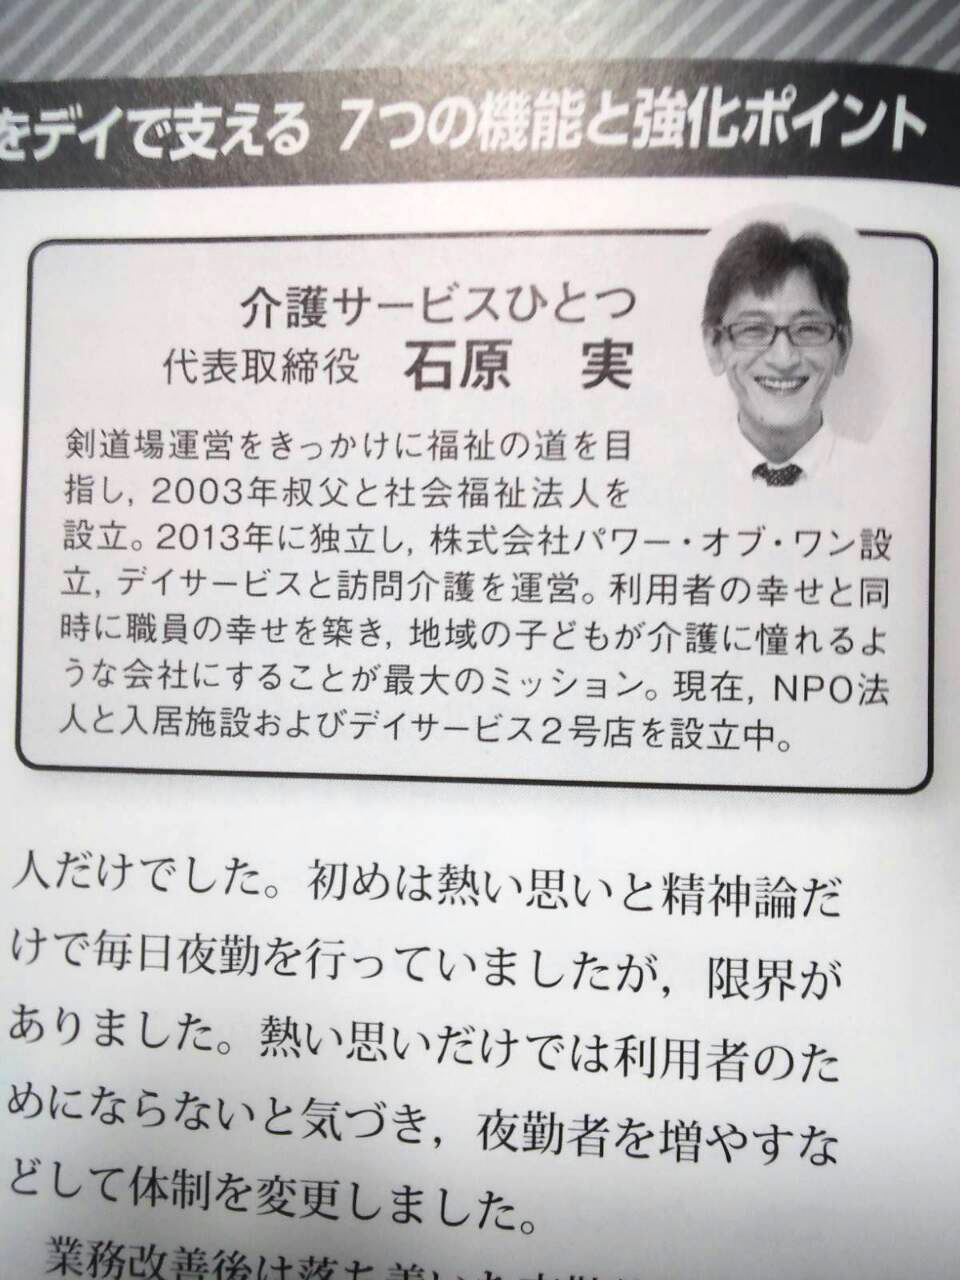 をデイで支える 7つの機能と強化ポイント
介護サービスひとつ
代表取締役 石原 実
剣道場運営をきっかけに福祉の道を目
指し, 2003年叔父と社会福祉法人を
設立。2013年に独立し, 株式会社パワー・オブ・ワン設
立, デイサービスと訪問介護を運営。利用者の幸せと同
時に職員の幸せを築き, 地域の子どもが介護に憧れるよ
うな会社にすることが最大のミッション。現在, NPO法
人と入居施設およびデイサービス2号店を設立中。
人だけでした。初めは熱い思いと精神論だ
けで毎日夜勤を行っていましたが, 限界が
ありました。熱い思いだけでは利用者のた
めにならないと気づき, 夜勤者を増やすな
どして体制を変更しました。
業務改善後は落ち着いた